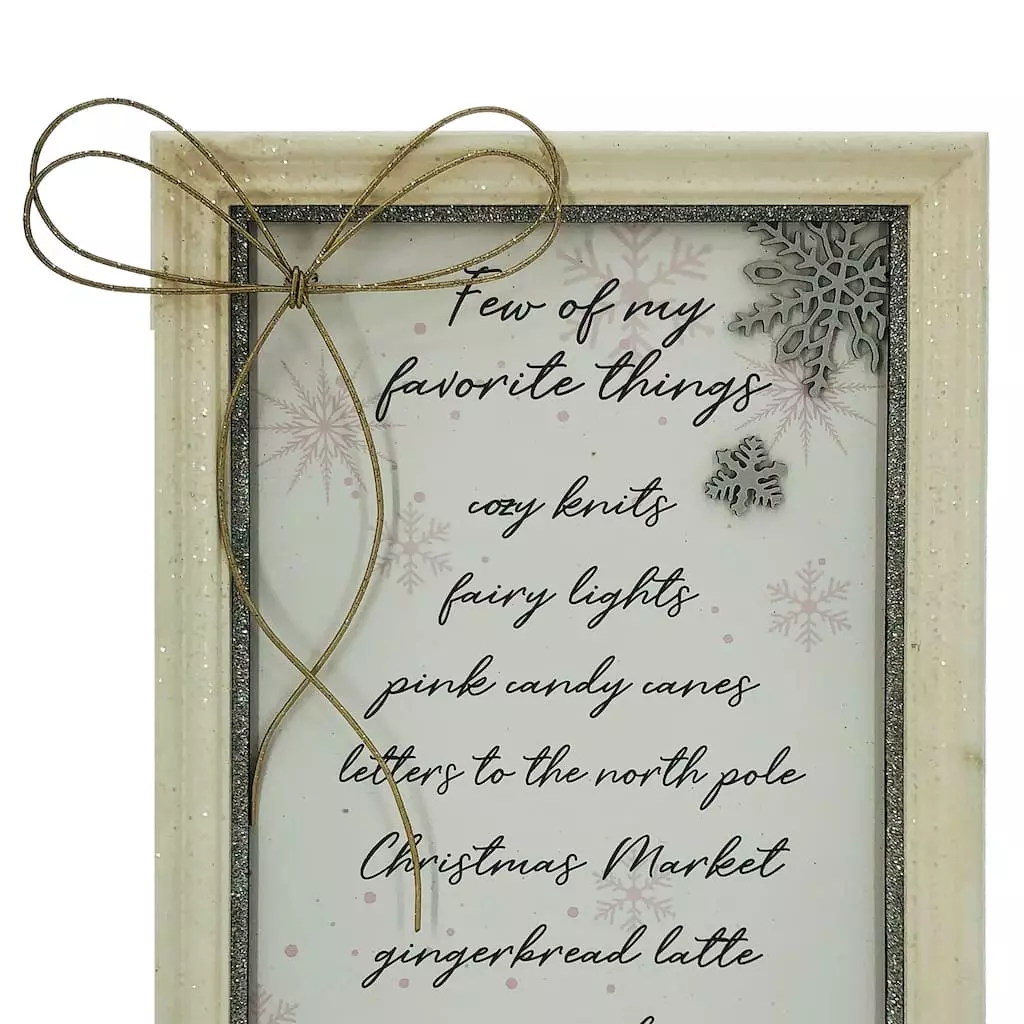 Few of my
favorite things
cozy knits
fairy lights
pink candy canes
letters to the north pole
Christmas Market
gingerbread latte